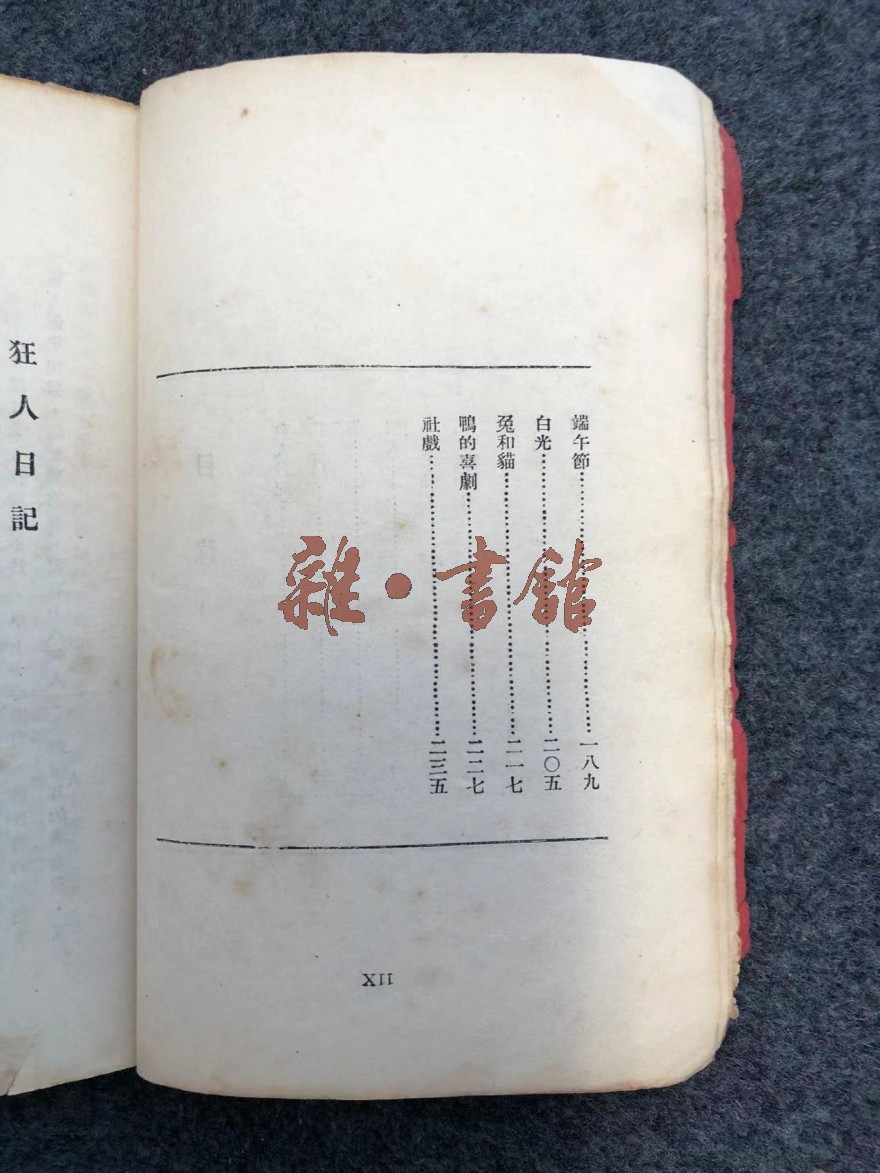 端午節……一八九
白光……二〇五
兔和貓……二一七
鴨的喜劇……二二七
社戲……二三五
XII
狂人日記
雜·書館